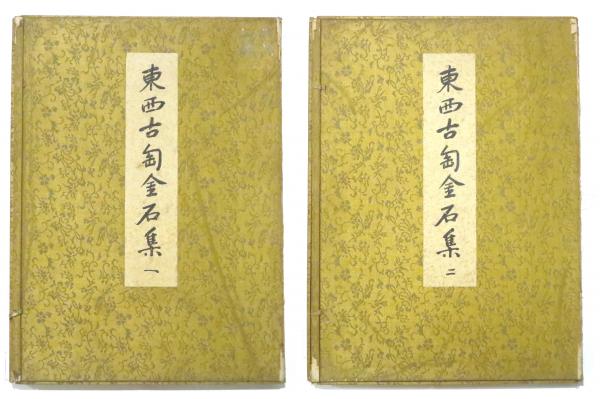 東西古匋金石集 一
東西古匋金石集 二